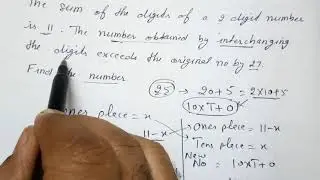 The sum of the digits of a 2 digit number
is 11. The number obtained by interchanging
the digits exceeds the original no by 27.
Find the number
25 → 20+5 = 2×10+5
10×T+0
Ones place = x
11-x
Ones place = 11-x
Tens place = x
New
No = 10×T+0